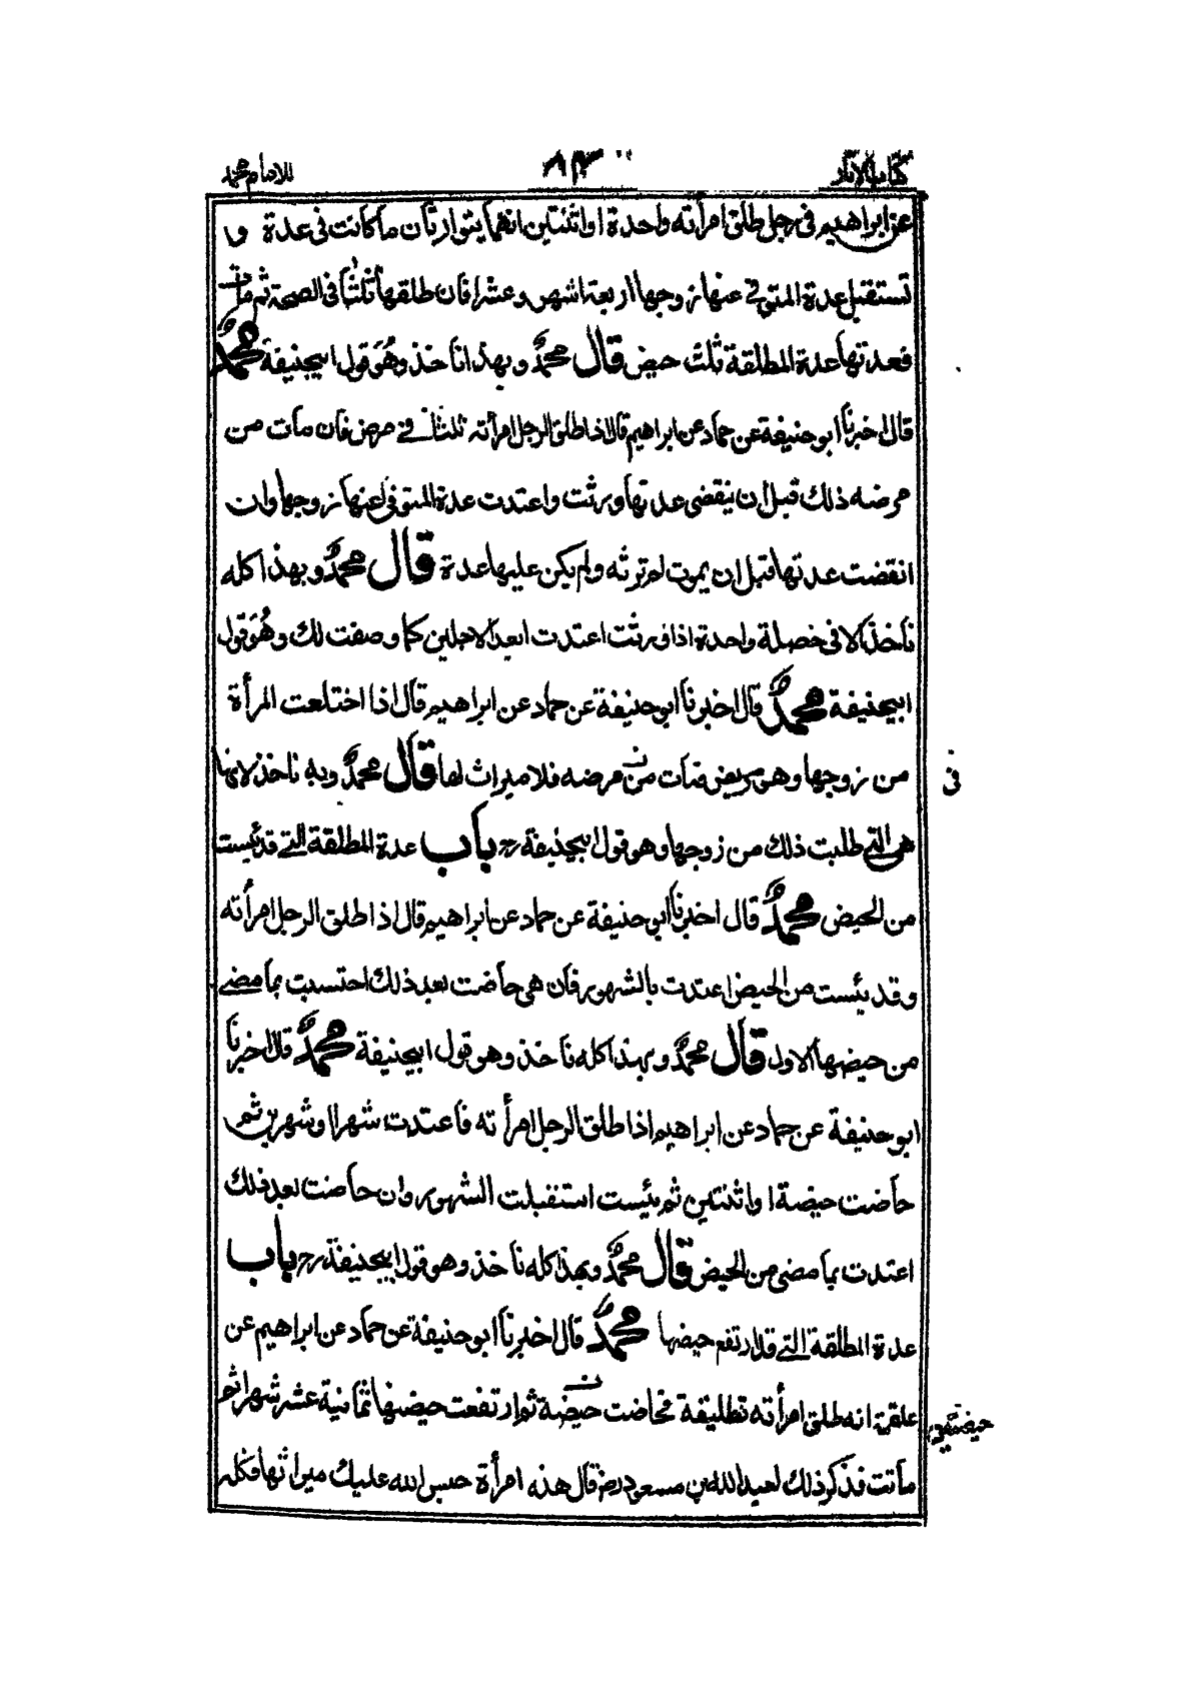 كتاب الاثار ٨٣ للامام محمد
عن ابراهيم فى رجل طلق امرأته واحدة او اثنتين انهما يتوارثان ما كانت فى عدة و
تستقبل عدة المتوفى عنها زوجها اربعة اشهر وعشرا فان طلقها ثلثا فى الصحة ثم مات
فعدتها عدة المطلقة ثلث حيض قال محمد وبهذا ناخذ وهو قول ابيحنيفة محمد
قال اخبرنا ابو حنيفة عن حماد عن ابراهيم قال اذا طلق الرجل امرأته ثلثا فى مرض فان مات من
مرضه ذلك قبل ان ينقضى عدتها ورثت واعتدت عدة المتوفى عنها زوجها وان
انقضت عدتها قبل ان يموت لم ترثه ولم يكن عليها عدة قال محمد وبهذا كله
ناخذ الا فى خصلة واحدة اذا ورثت اعتدت ابعد الاجلين كما وصفت لك وهو قول
ابيحنيفة محمد قال اخبرنا ابو حنيفة عن حماد عن ابراهيم قال اذا اختلعت المرأة
من زوجها وهو مريض فمات من مرضه فلا ميراث لها قال محمد وبه ناخذ لانها
فى
هى التى طلبت ذلك من زوجها وهو قول ابيحنيفة رح باب عدة المطلقة التى قد يئست
من الحيض محمد قال اخبرنا ابو حنيفة عن حماد عن ابراهيم قال اذا طلق الرجل امرأته
وقد يئست من الحيض اعتدت بالشهور فان هى حاضت بعد ذلك احتسبت بما مضى
من حيضها الاول قال محمد وبهذا كله ناخذ وهو قول ابيحنيفة محمد قال اخبرنا
ابو حنيفة عن حماد عن ابراهيم اذا طلق الرجل امرأته فاعتدت شهرا او شهرين ثم
حاضت حيضة او اثنتين ثم يئست استقبلت الشهور وان حاضت بعد ذلك
اعتدت بما مضى من الحيض قال محمد وبهذا كله ناخذ وهو قول ابيحنيفة رح باب
عدة المطلقة التى قد ارتفع حيضها محمد قال اخبرنا ابو حنيفة عن حماد عن ابراهيم عن
علقمة انه طلق امرأته تطليقة فحاضت حيضة ثم ارتفعت حيضها ثمانية عشر شهرا ثم
حيضتين
ماتت فذكر ذلك لعبد الله بن مسعود رض قال هذه امرأة حبس الله عليك ميراثها فكله